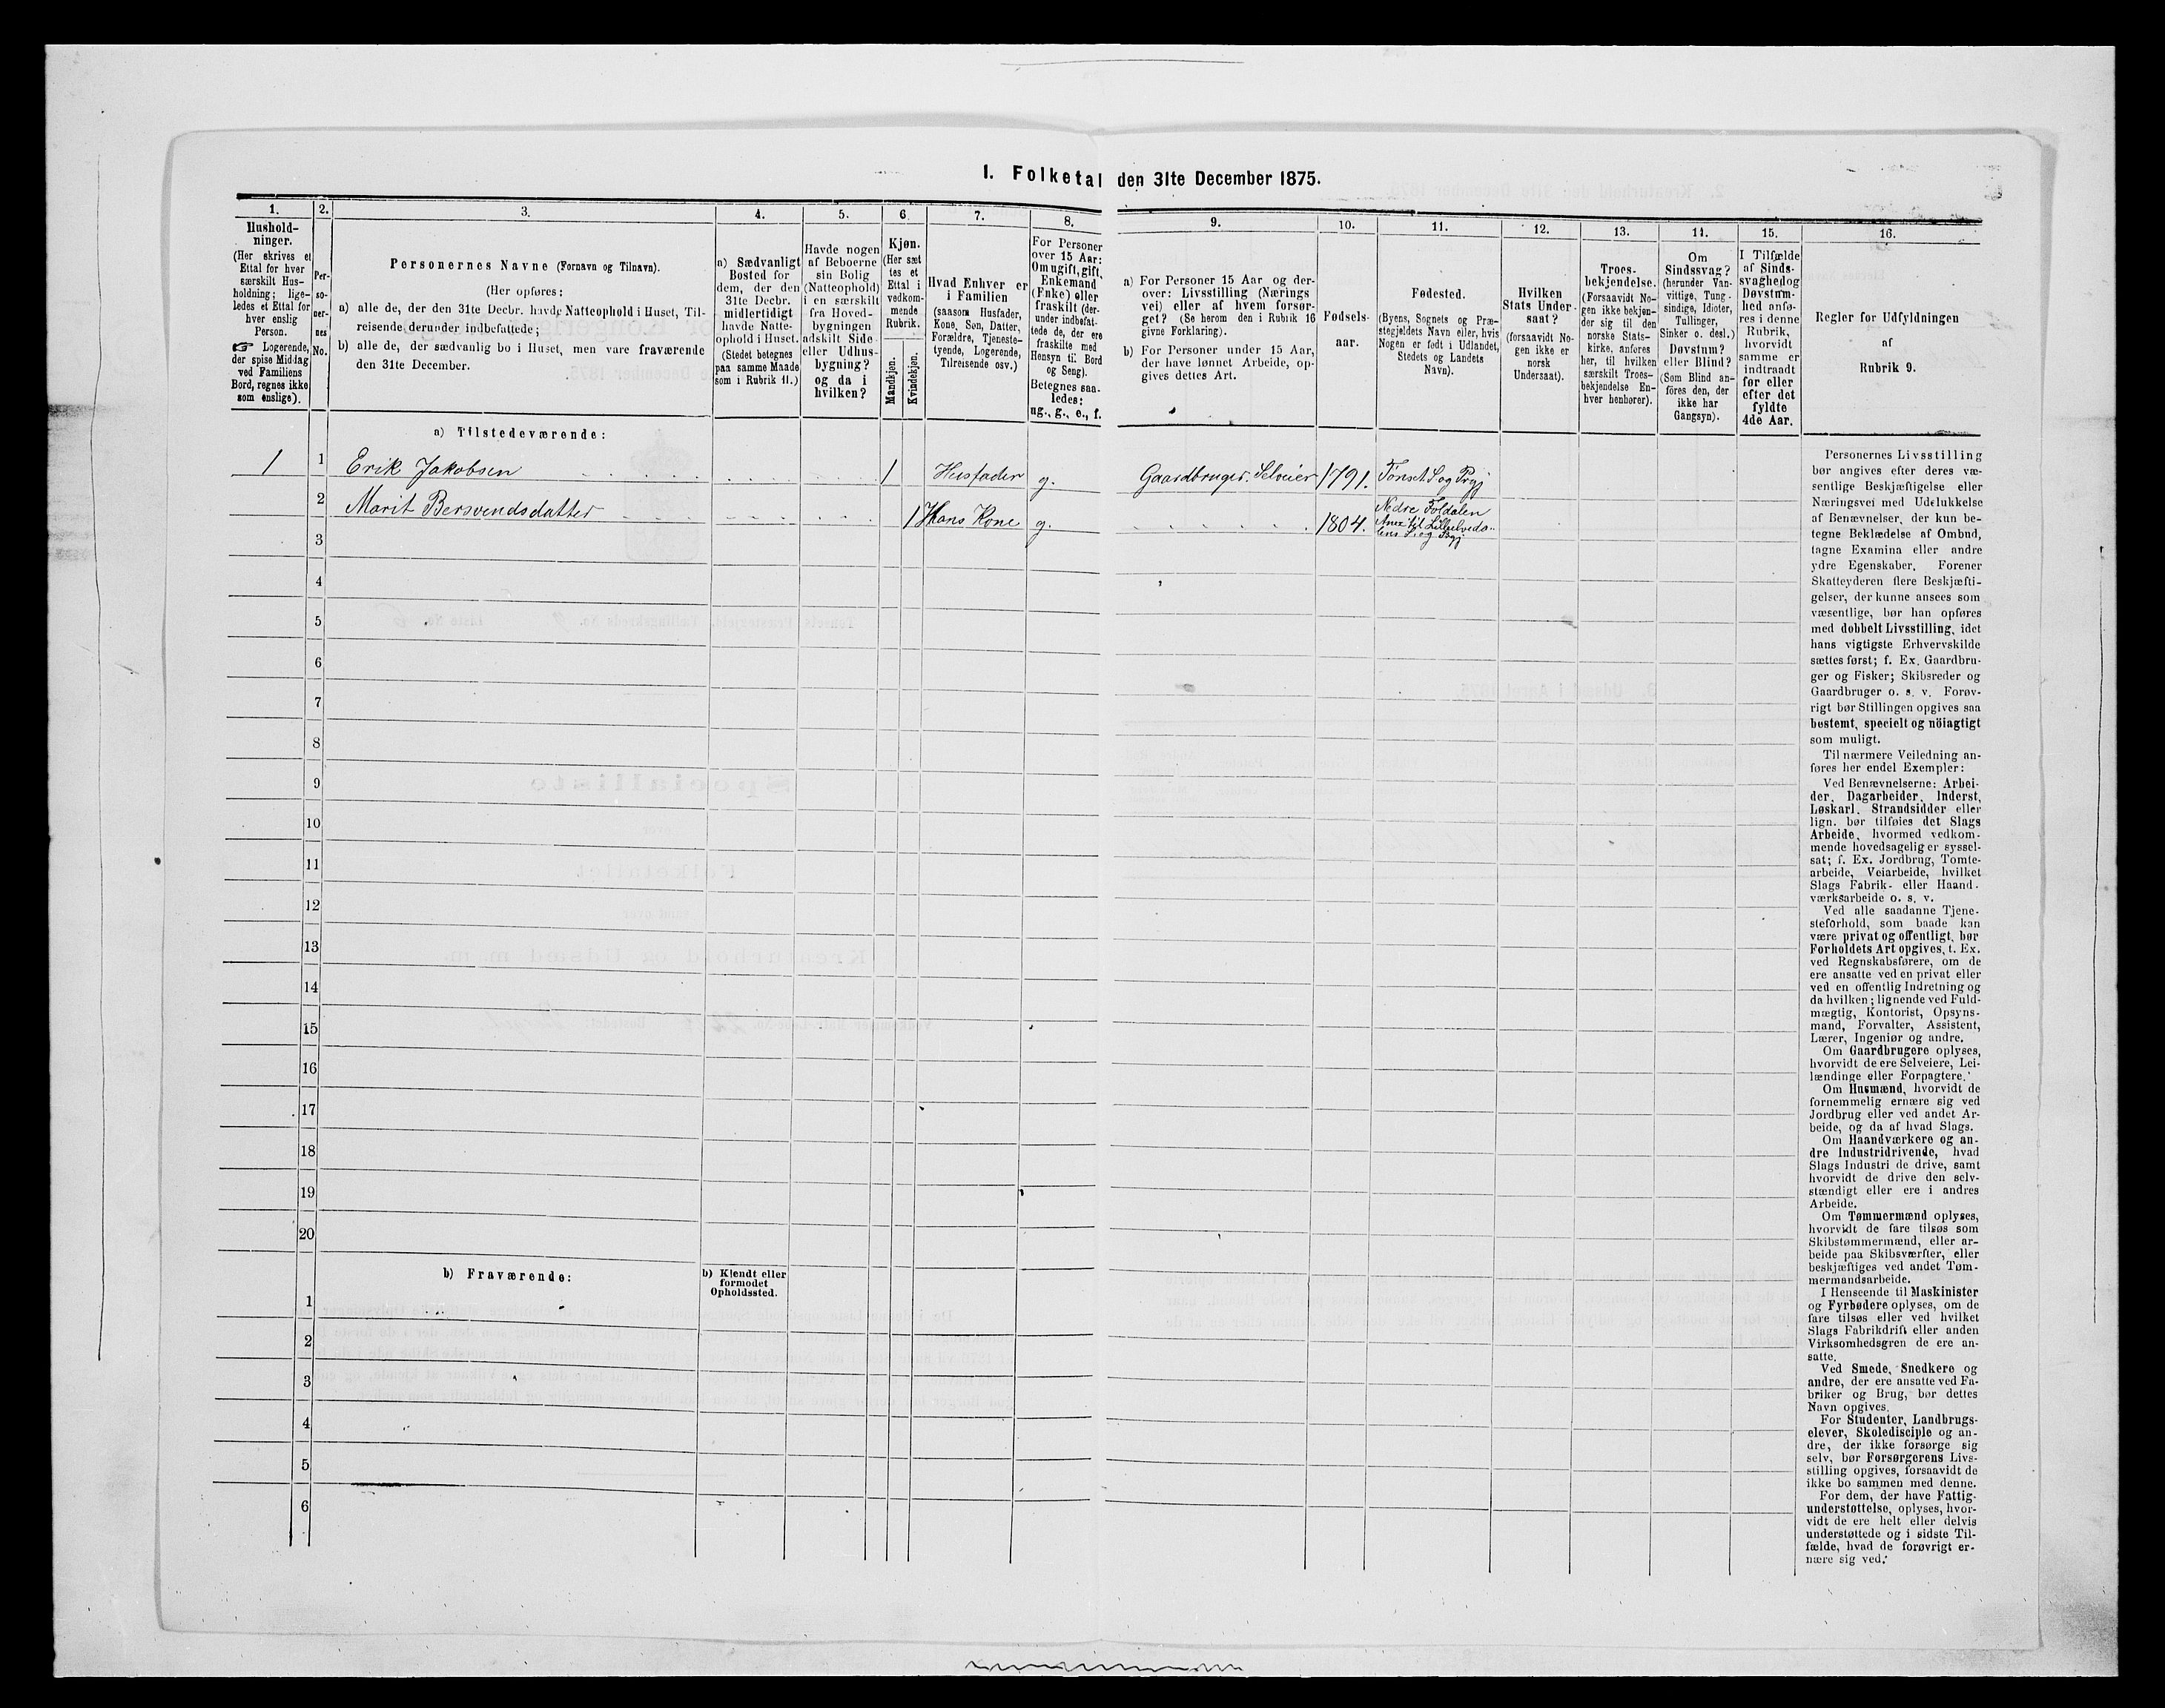 I. Folketal den 31te December 1875.
1.
Hushold-
ninger.
(Her skrives et
Ettal for hver
særskilt Hus-
holdning; lige-
ledes et Ettal for
hver enslig
Person.
☞ Logerende,
der spise Middag
ved Familiens
Bord, regnes ikke
som enslige).
2.
Per-
so-
ner-
nes
No.
3.
Personernes Navne (Fornavn og Tilnavn).
(Her opføres:
a) alle de, der den 31te Decbr. havde Natteophold i Huset, Til-
reisende derunder indbefattede;
b) alle de, der sædvanlig bo i Huset, men vare fraværende
den 31te December.
4.
a) Sædvanligt
Bosted for
dem, der den
31te Decbr.
midlertidigt
havde Natte-
ophold i Huset.
(Stedet betegnes
paa samme Maade
som i Rubrik 11.)
5.
Havde nogen
af Beboerne
sin Bolig
(Natteophold)
i en særskilt
fra Hoved-
bygningen
adskilt Side-
eller Udhus-
bygning?
og da i
hvilken?
6.
Kjøn.
(Her sæt
tes et
Ettal i
vedkom-
mende
Rubrik.
Mandkjøn.
Kvindekjøn.
7.
Hvad Enhver er
i Familien
(saasom Husfader,
Kone, Søn, Datter,
Forældre, Tjeneste-
tyende, Logerende,
Tilreisende osv.)
8.
For Personer
over 15 Aar:
Om ugift, gift,
Enkemand
(Enke) eller
fraskilt (der-
under indbefat-
tede de, der ere
fraskilte med
Hensyn til Bord
og Seng).
Betegnes saa-
ledes:
ug., g., e., f.
9.
a) For Personer 15 Aar og der-
over: Livsstilling (Nærings
vei) eller af hvem forsør-
get? (Se herom den i Rubrik 16
givne Forklaring).
b) For Personer under 15 Aar,
der have lønnet Arbeide, op-
gives dettes Art.
10.
Fødsels-
aar.
11.
Fødested.
(Byens, Sognets og Præ-
stegjeldets Navn eller, hvis
Nogen er født i Udlandet,
Stedets og Landets
Navn).
12.
Hvilken
Stats Under-
saat?
(forsaavidt No-
gen ikke er
norsk
Undersaat).
13.
Troes-
bekjendelse.
(Forsaavidt No-
gen ikke bekjen-
der sig til den
norske Stats-
kirke, anføres
her, til hvilken
særskilt Troes-
bekjendelse En-
hver henhører).
14.
Om
Sindssvag?
(herunder Van-
vittige, Tung-
sindige, Idioter,
Tullinger,
Sinker o. desl.)
Døvstum?
eller Blind?
(Som Blind an-
føres den, der
ikke har
Gangsyn).
15.
I Tilfælde
af Sinds-
svaghed og
Døvstum-
hed anfø-
res i denne
Rubrik,
hvorvidt
samme er
indtraadt
før eller
efter det
fyldte
4de Aar.
16.
Regler for Udfyldningen
af
Rubrik 9.
a) Tilstedeværende:
1 1 Erik Jakobsen 1 Husfader g. Gaardbruger. Selveier 1791. Tønset S. og Prgj
2 Marit Bersvendsdatter 1 Hans Kone g. 1804. Nedre Foldalen
Anx til Lilleelveda-
lens S. og Prgj
3
4
5
6
7
8
9
10
11
12
13
14
15
16
17
18
19
20
b) Fraværende:
b) Kjendt eller
formodet
Opholdssted.
1
2
3
4
5
6
Personernes Livsstilling
bør angives efter deres væ-
sentlige Beskjæftigelse eller
Næringsvei med Udelukkelse
af Benævnelser, der kun be-
tegne Beklædelse af Ombud,
tagne Examina eller andre
ydre Egenskaber. Forener
Skatteyderen flere Beskjæfti-
gelser, der kunne ansees som
væsentlige, bør han opføres
med dobbelt Livsstilling, idet
hans vigtigste Erhvervskilde
sættes først; f. Ex. Gaardbru-
ger og Fisker; Skibsreder og
Gaardbruger o. s. v. Forøv-
rigt bør Stillingen opgives saa
bestemt, specielt og nöiagtigt
som muligt.
Til nærmere Veiledning an-
føres her endel Exempler:
Ved Benævnelserne: Arbei-
der, Dagarbeider, Inderst,
Løskarl, Strandsidder eller
lign. bør tilføies det Slags
Arbeide, hvormed vedkom-
mende hovedsagelig er syssel-
sat; f. Ex. Jordbrug, Tomte-
arbeide, Veiarbeide, hvilket
Slags Fabrik- eller Haand-
værksarbeide o. s. v.
Ved alle saadanne Tjene-
steforhold, som baade kan
være privat og offentligt, bør
Forholdets Art opgives, t. Ex.
ved Regnskabsførere, om de
ere ansatte ved en privat eller
ved en offentlig Indretning og
da hvilken; lignende ved Fuld-
mægtig, Kontorist, Opsyns-
mand, Forvalter, Assistent,
Lærer, Ingeniør og andre.
Om Gaardbrugere oplyses,
hvorvidt de ere Selveiere, Lei-
lændinge eller Forpagtere.
Om Husmænd, hvorvidt de
fornemmelig ernære sig ved
Jordbrug eller ved andet Ar-
beide, og da af hvad Slags.
Om Haandværkere og an-
dre Industridrivende, hvad
Slags Industri de drive, samt
hvorvidt de drive den selv-
stændigt eller ere i andres
Arbeide.
Om Tømmermænd oplyses,
hvorvidt de fare tilsøs som
Skibstømmermænd, eller ar-
beide paa Skibsværfter, eller
beskjæftiges ved andet Tøm-
mermandsarbeide.
I Henseende til Maskinister
og Fyrbødere oplyses, om de
fare tilsøs eller ved hvilket
Slags Fabrikdrift eller anden
Virksomhedsgren de ere an-
satte.
Ved Smede, Snedkere og
andre, der ere ansatte ved Fa-
briker og Brug, bør dettes
Navn opgives.
For Studenter, Landbrugs-
elever, Skoledisciple og an-
dre, der ikke forsørge sig
selv, bør Forsørgerens Livs-
stilling opgives, forsaavidt de
ikke bo sammen med denne.
For dem, der have Fattig-
understøttelse, oplyses, hvor-
vidt de ere helt eller delvis
understøttede og i sidste Til-
fælde, hvad de forøvrigt er-
nære sig ved.